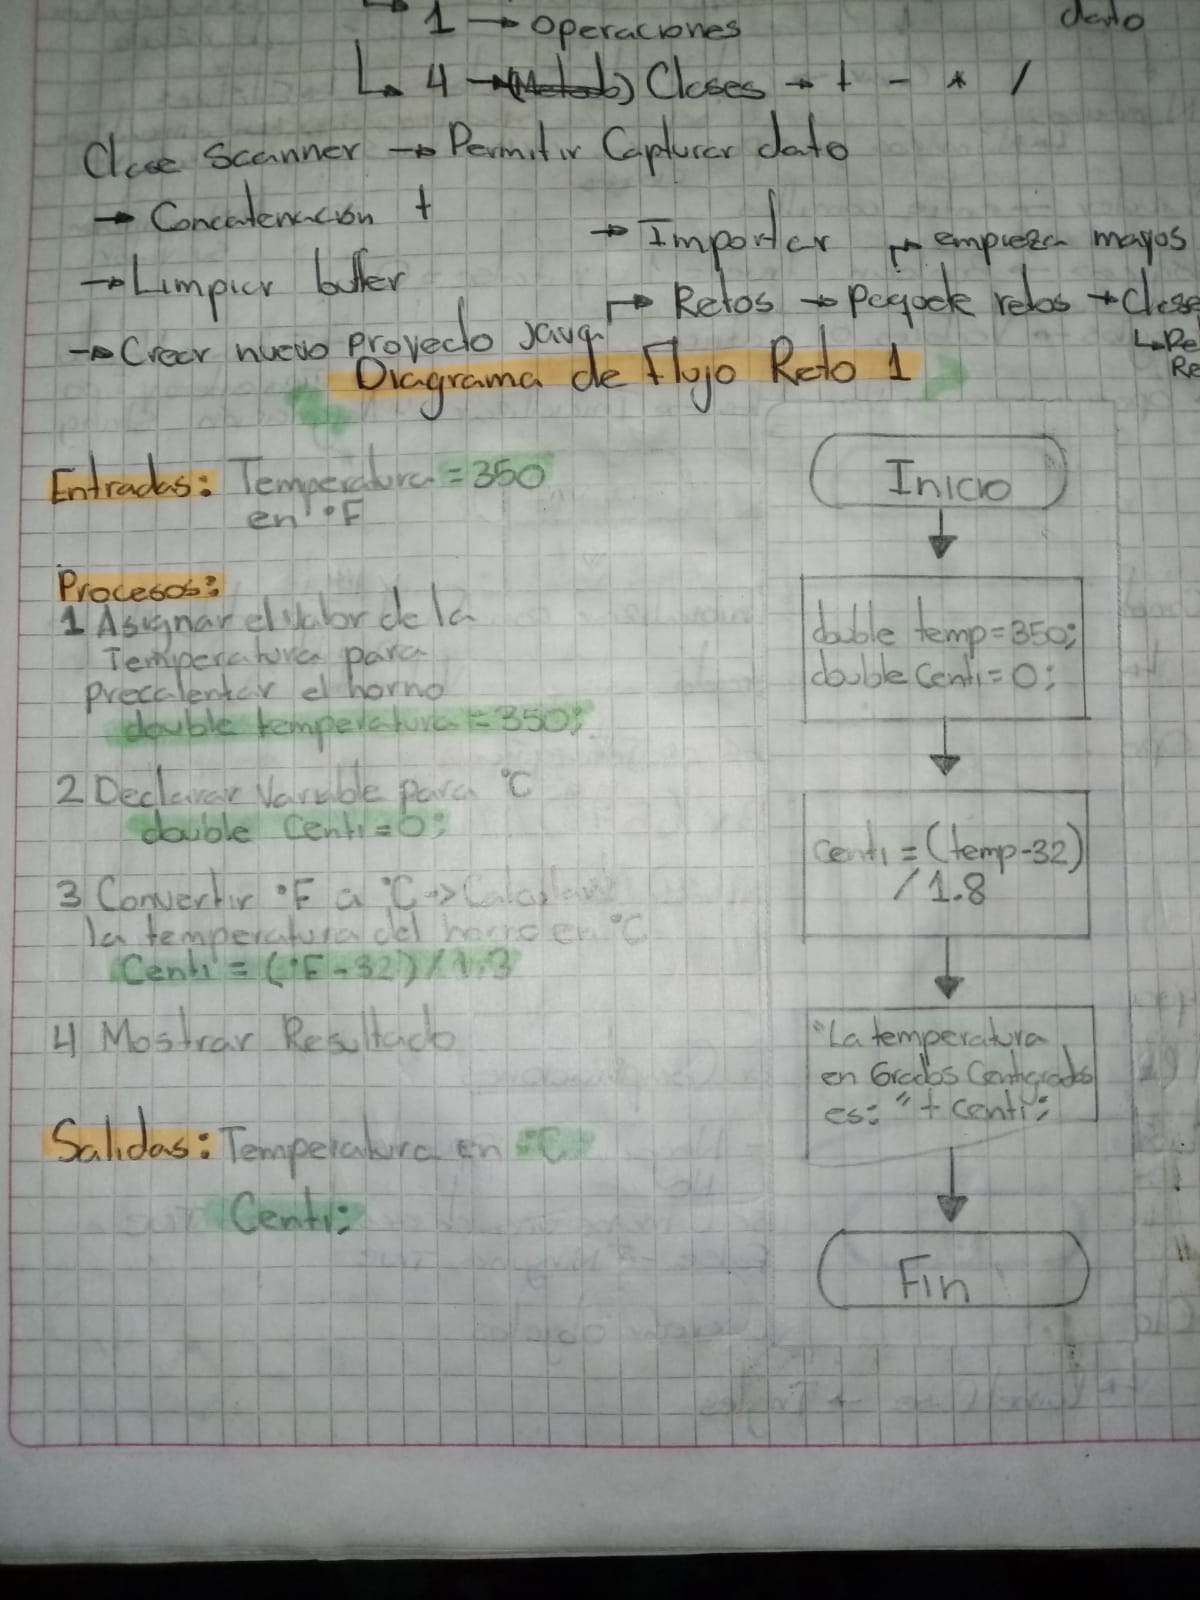 1 → Operaciones
dato
4 → Clases → + - * /
Clase Scanner → Permitir Capturar dato
→ Concatenación +
→ Importar
→ empieza mayos
→ Limpiar buffer
→ Retos → Paquete retos → Clase
→ Crear nuevo proyecto Java
Re
Re
Diagrama de Flujo Reto 1
Entradas: Temperatura = 350
en °F
Procesos:
1 Asignar el valor de la
Temperatura para
precalentar el horno
double temperatura = 350;
2 Declarar Variable para °C
double Centi = 0;
3 Convertir °F a °C → Calcular
la temperatura del horno en °C
Centi = (°F - 32) / 1.8
4 Mostrar Resultado
Salidas: Temperatura en °C
Centi;
Inicio
double temp = 350;
double Centi = 0;
Centi = (temp - 32)
/ 1.8
"La temperatura
en Grados Centigrados
es: " + Centi;
Fin